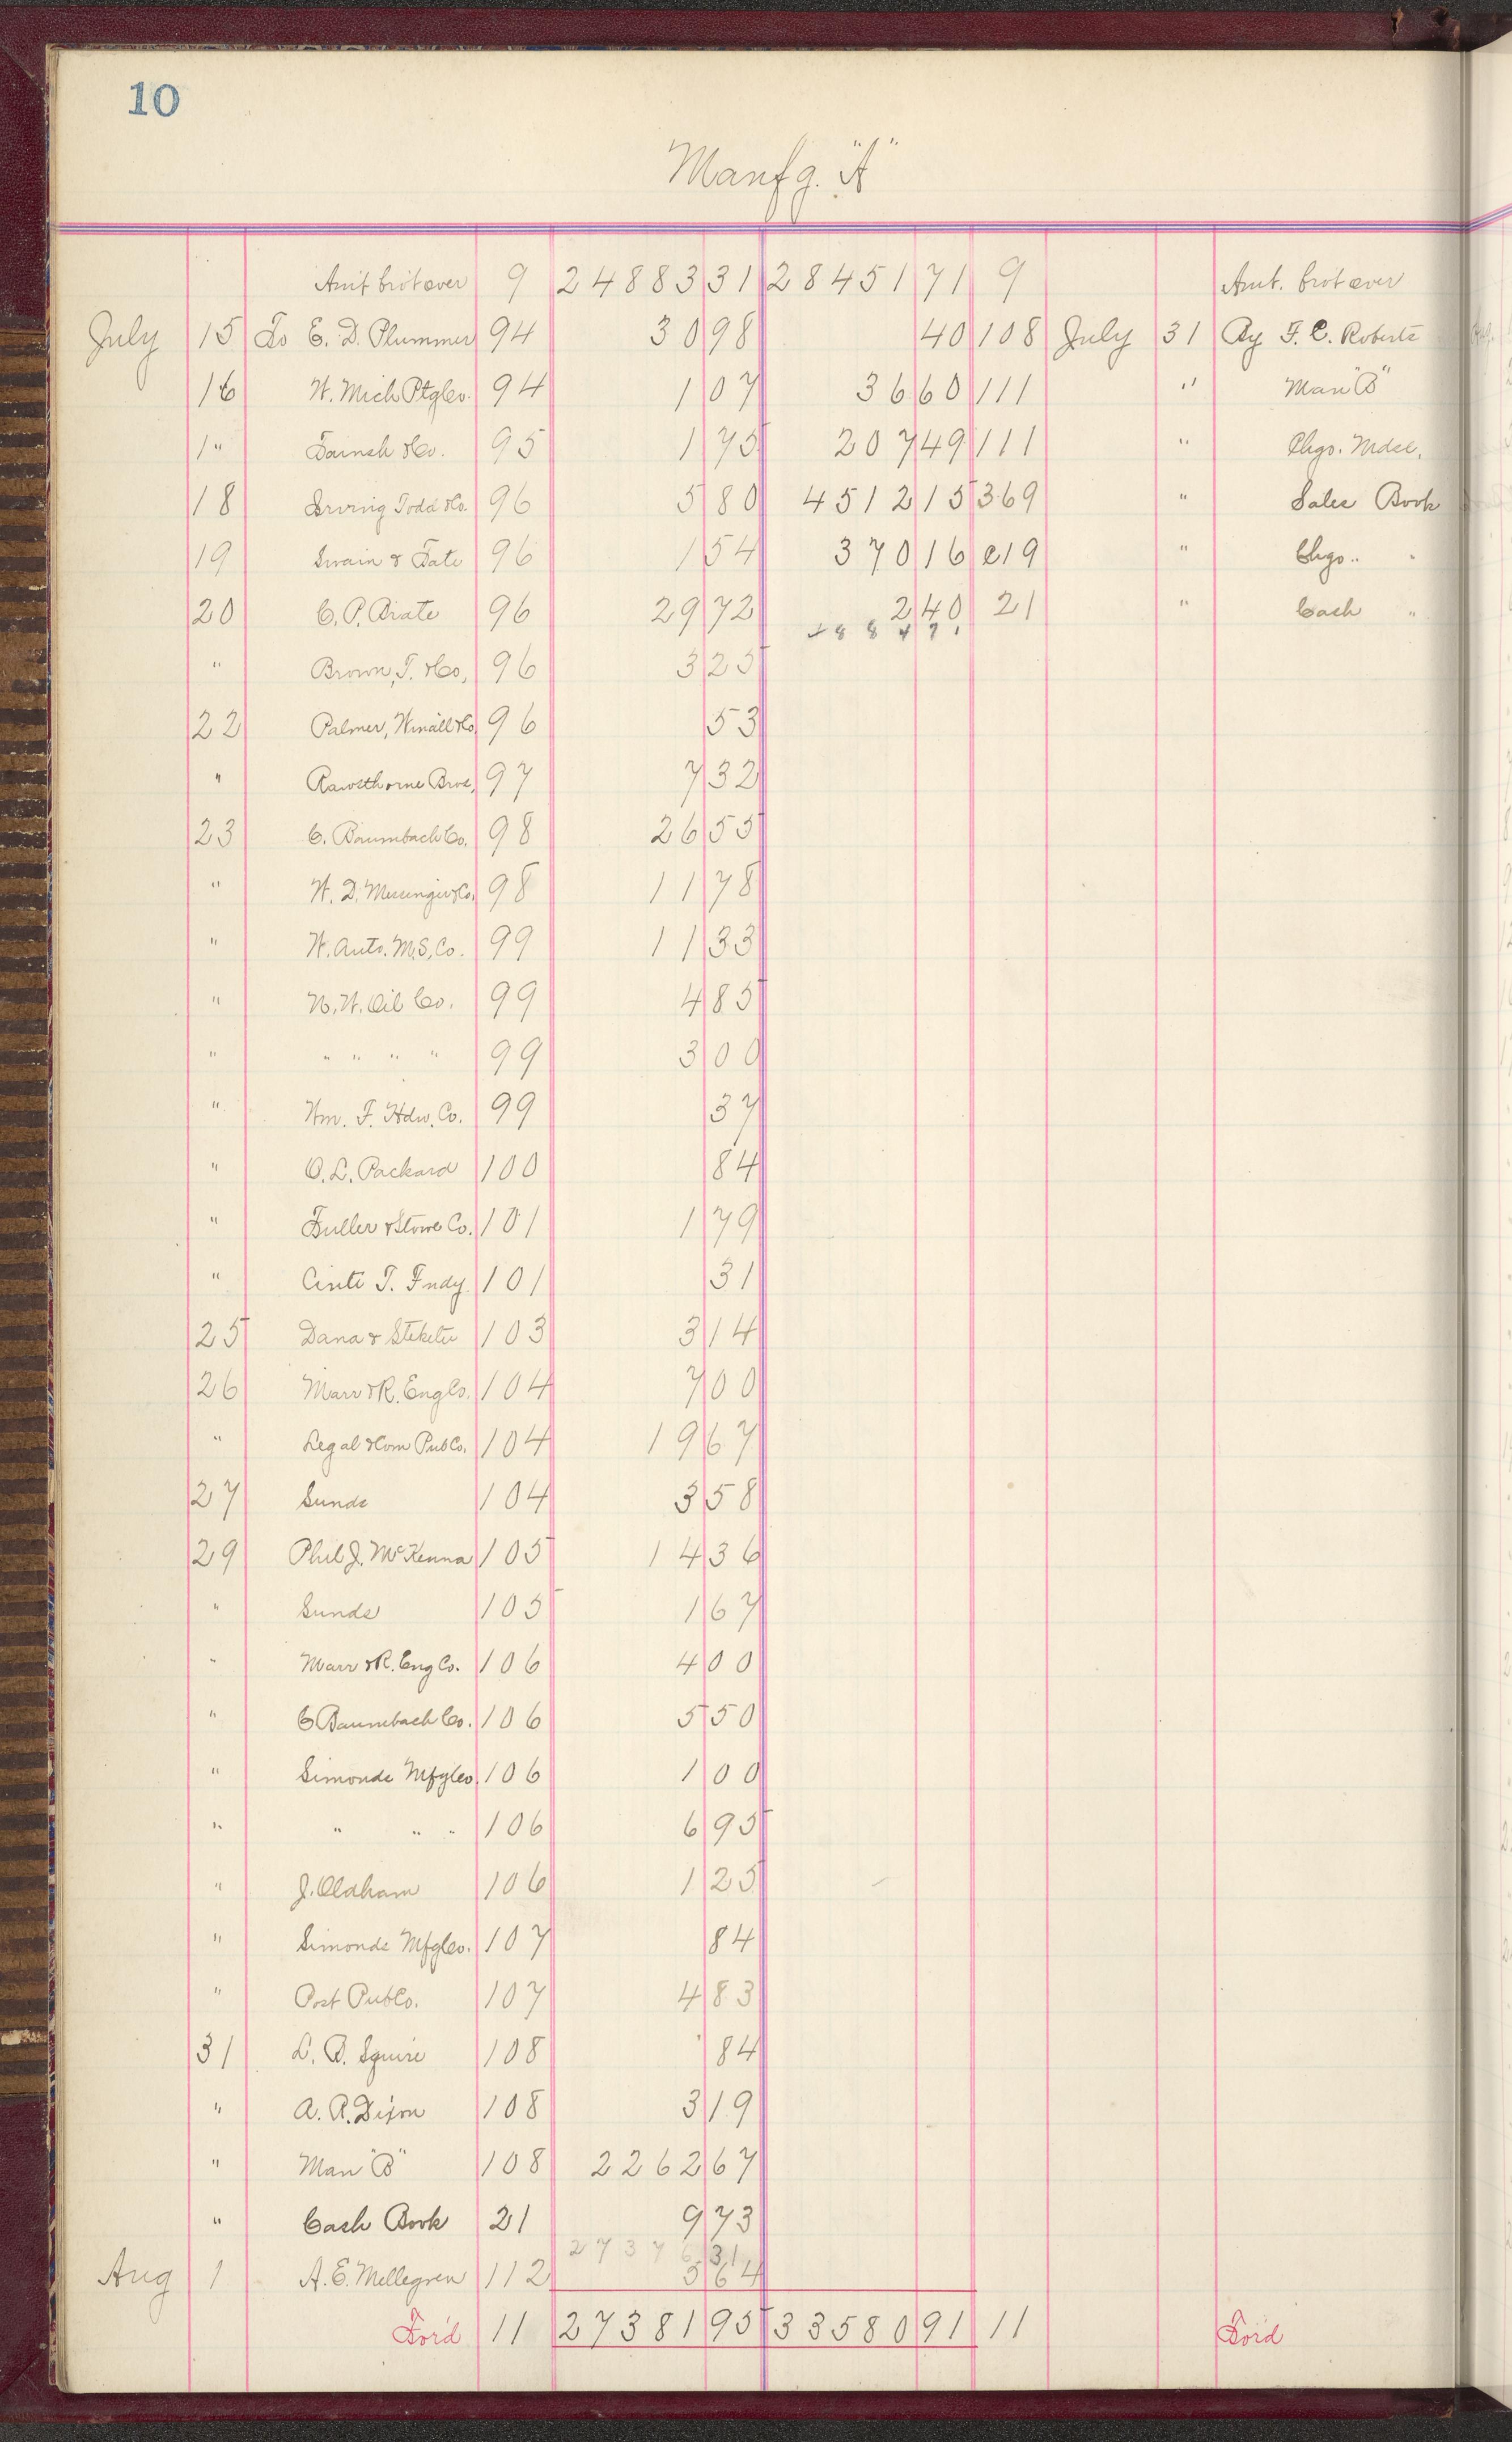 10
Manfg. "A"
Amt brot over 9 24883 31 28451 71 9 Amt. brot over
July 15 To E. D. Plummer 94 30 98 40 108 July 31 By F. C. Roberts
16 W. Mich Ptg Co. 94 1 07 36 60 111 " Man "B"
1" Tarnsh & Co. 95 1 75 207 49 111 " Chgs. Mdse.
18 Irving Todd & Co. 96 5 80 4512 15 369 " Sales Book
19 Swain & Tate 96 1 54 370 16 e19 " Chgs. "
20 C. P. 96 29 72 2 40 21 " Cash "
" Brown, T. & Co, 96 3 25
22 Palmer, Winall & Co 96 53
" Rawsthorne Bros, 97 7 32
23 C. Baumbach Co. 98 26 55
" W. D. Messinger & Co. 98 11 78
" W. Auto. M.S. Co. 99 11 33
" N. W. Oil Co. 99 4 85
" " " " " 99 3 00
" Wm. F. Hdw. Co. 99 37
" O. L. Packard 100 84
" Fuller & Stowe Co. 101 1 79
" Cinti T. Fndy. 101 31
25 Dana & Steketee 103 3 14
26 Marr & R. Eng Co. 104 7 00
" Legal & Com Pub Co. 104 19 67
27 Sunds 104 3 58
29 Phil J. McKenna 105 14 36
" Sunds 105 1 67
" Marr & R. Eng Co. 106 4 00
" C Baumbach Co. 106 5 50
" Simonds Mfg Co 106 1 00
" " " " 106 6 95
" J. Oldham 106 1 25
" Simonds Mfg Co. 107 84
" Post Pub Co. 107 4 83
31 L. B. Squire 108 84
" A. R. Dixon 108 3 19
" Man "B" 108 2262 67
" Cash Book 21 9 73
27376 31
Aug 1 A. E. Mellegren 112 5 64
For'd 11 27381 95 33580 91 11 For'd